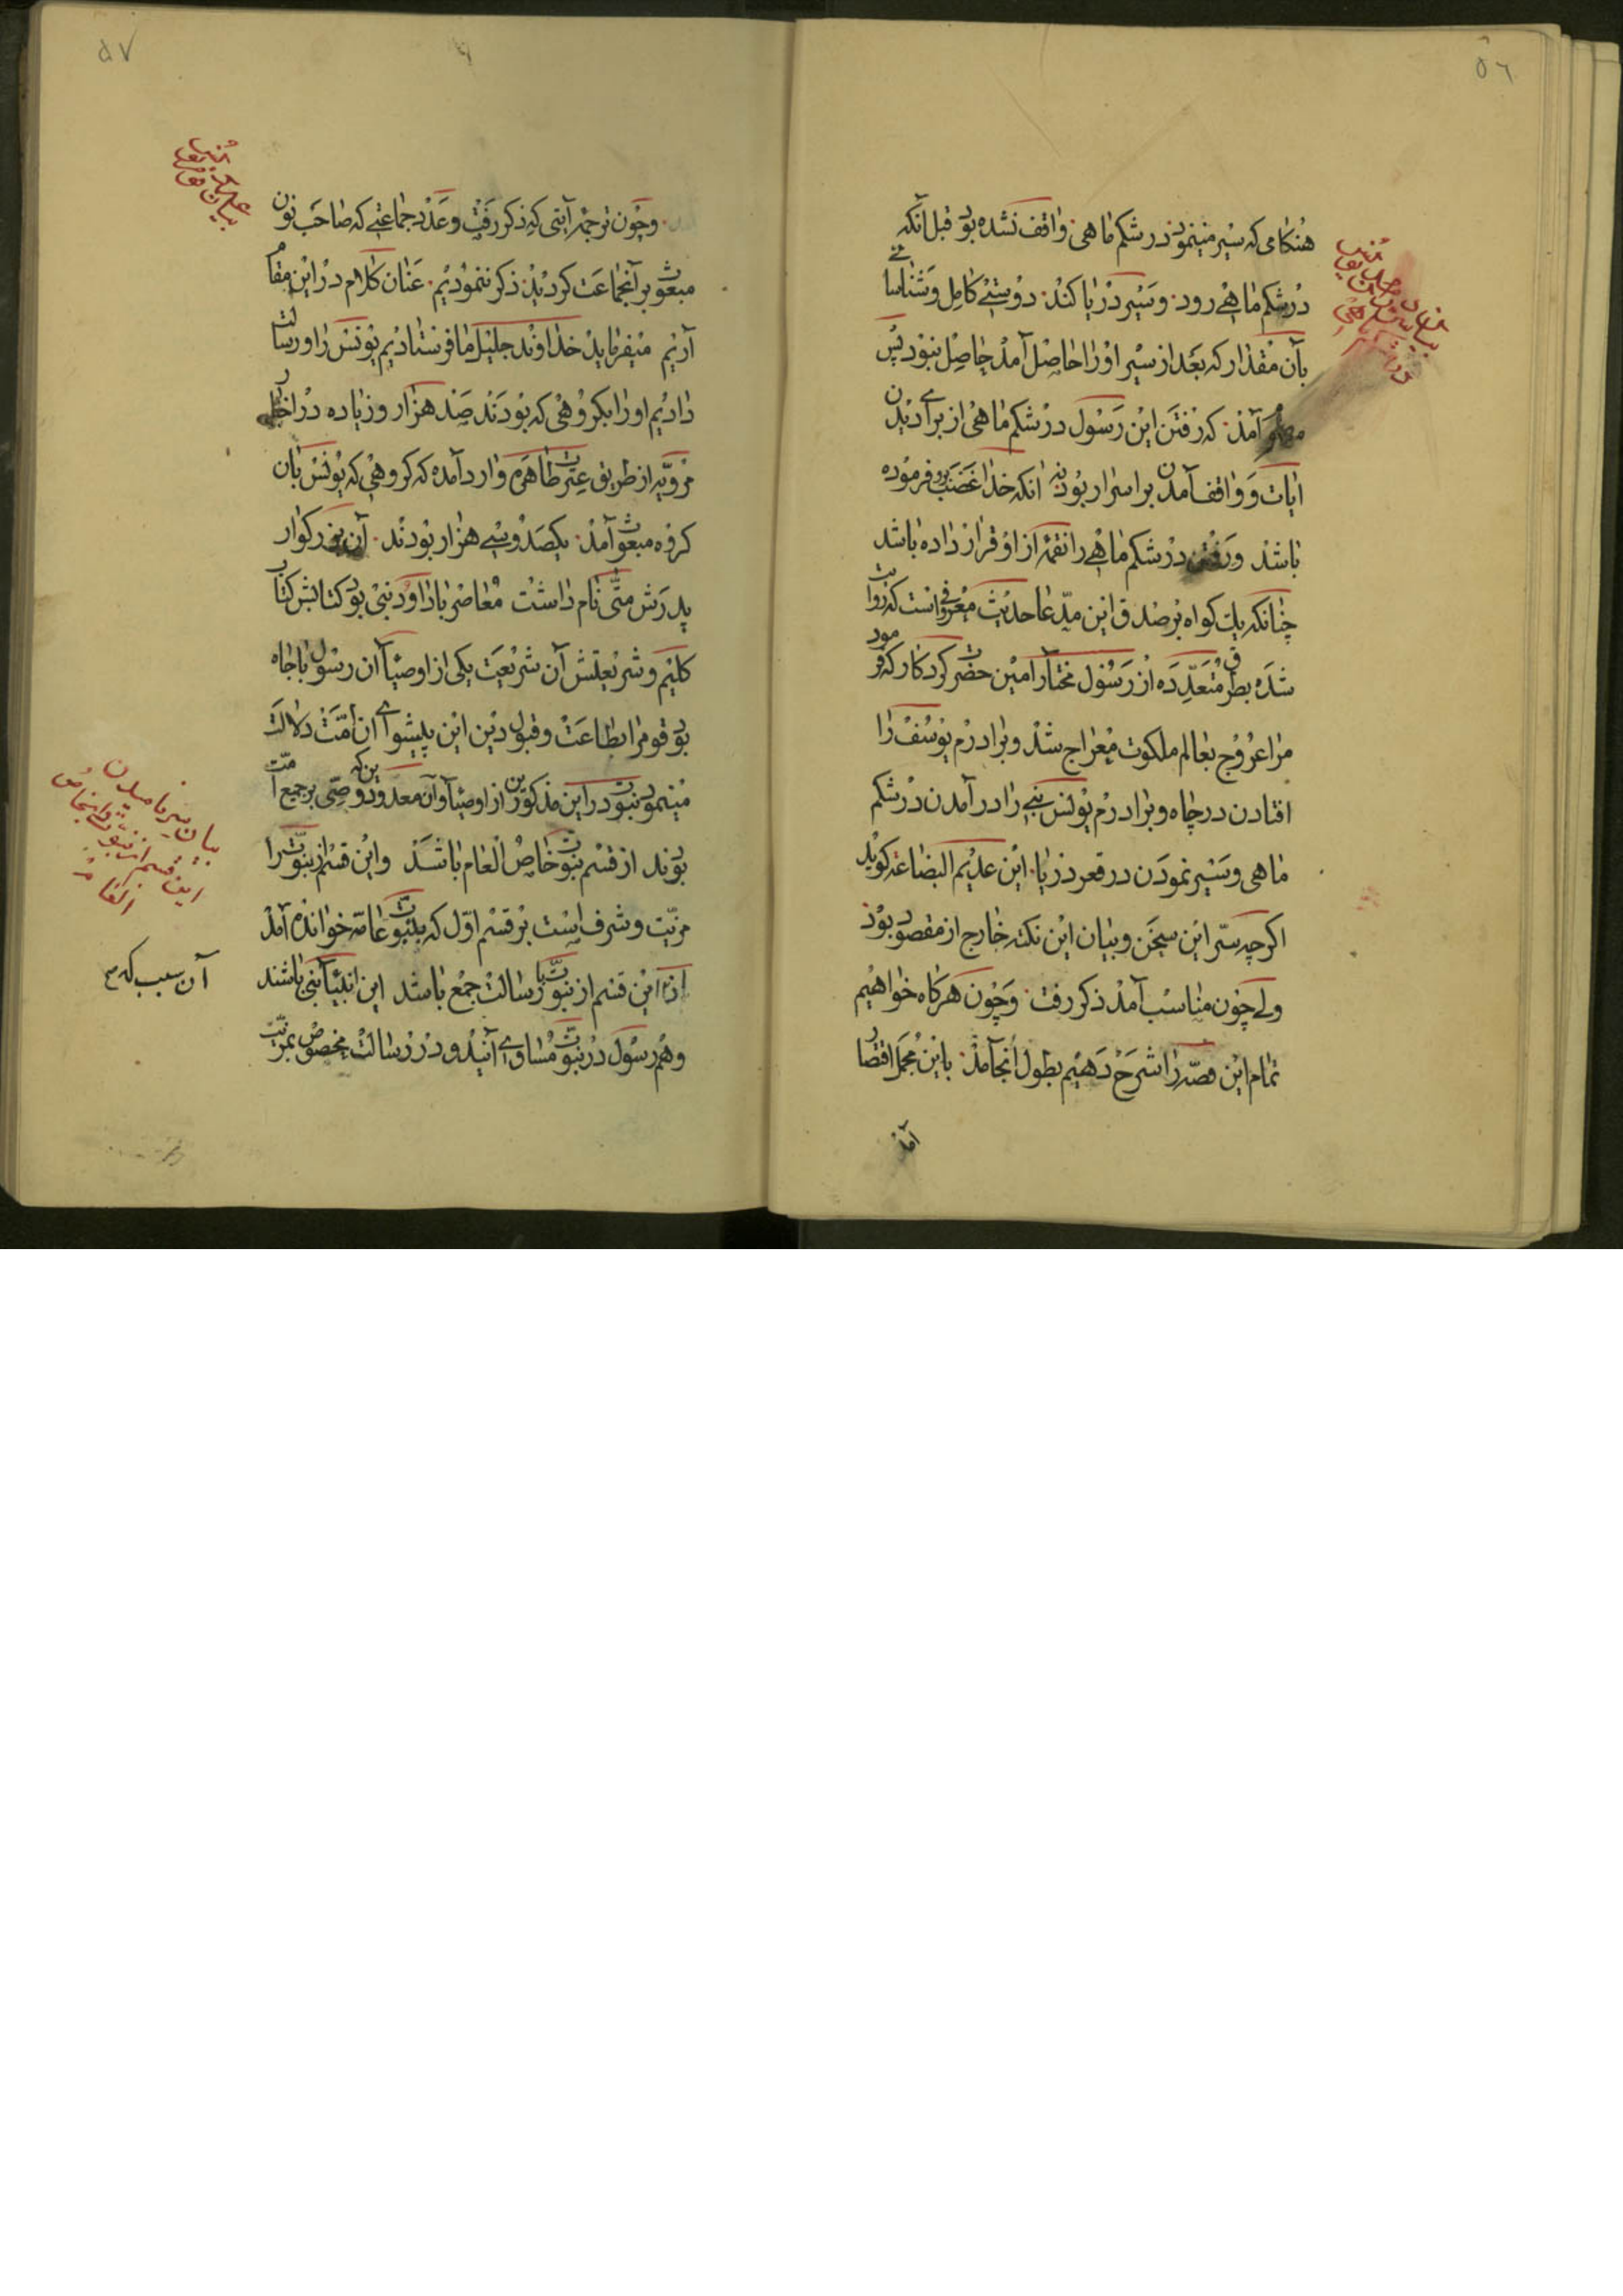 ٥٦
هنكامی كه سیر مینمود در شكم ماهی واقف نشده بود قبل آنكه
در شكم ماهی رود وسیر دریا كند دوستی كامل وشناسایی
بآن مقدار كه بعد از سیر اورا حاصل آمد حاصل نبود پس
آمد كه رفتن این رسول در شكم ماهی از برای دیدن
ایات و واقف آمدن بر اسرار بود نه انكه خدا غضب برو فرموده
باشد ورفتن در شكم ماهی را نقمه از او قرار داده باشد
چنانكه یك كواه بر صدق این مدّعا حدیث معروفی است كه روایت
شده بطرق متعدّده از رسول مختار امین حضرت كردكار كه فرمود
مرا عروج بعالم ملكوت معراج شد وبرادرم یوسف را
افتادن در چاه وبرادرم یونس نبی را در آمدن در شكم
ماهی وسیر نمودن در قعر دریا این عدیم البضاعه كوید
اكرچه سرّ این سخن وبیان این نكته خارج از مقصود بود
ولی چون مناسب آمد ذكر رفت وچون هركاه خواهیم
تمام این قصّه را شرح دهیم بطول انجامد باین مجمل اقتصار
آمد
٥٧
وچون ترجمه آیتی كه ذكر رفت وعدد جماعتی كه صاحب نون
مبعوث بر آنجماعت كردید ذكر ننمودیم عنان كلام در این مقام
آریم میفرماید خداوند جلیل ما فرستادیم یونس را ورسالت
دادیم اورا بكروهی كه بودند صد هزار وزیاده در اخبار
مرویّه از طریق عترت طاهره وارد آمده كه كروهی كه یونس بان
كروه مبعوث آمد یكصد وسی هزار بودند آن بزركوار
پدرش متّی نام داشت معاصر با داود نبی بود كتابش كتاب
كلیم وشریعتش آن شریعت یكی از اوصیآ ان رسول با جاه
بود قومرا بطاعت وقبول دین این پیشوای ان امّت دلالت
مینمود نبوت در این مذكورین از اوصیآ وآن معدودین كه وصی بر جمیع امّت
بودند از قسم نبوت خاص العام باشد واین قسم از نبوّترا
مزیّت وشرف است بر قسم اوّل كه بنبوّت عامّه خوانده آمد
اذا این قسم از نبوّت با رسالت جمع باشد این انبیآ نبی باشند
وهم رسول در نبوّت مساوی آیند ودر رسالت مخصوص بمرتبت
بیان سرّ نامیدن
این قسم از نبوّت
آن سبب كه